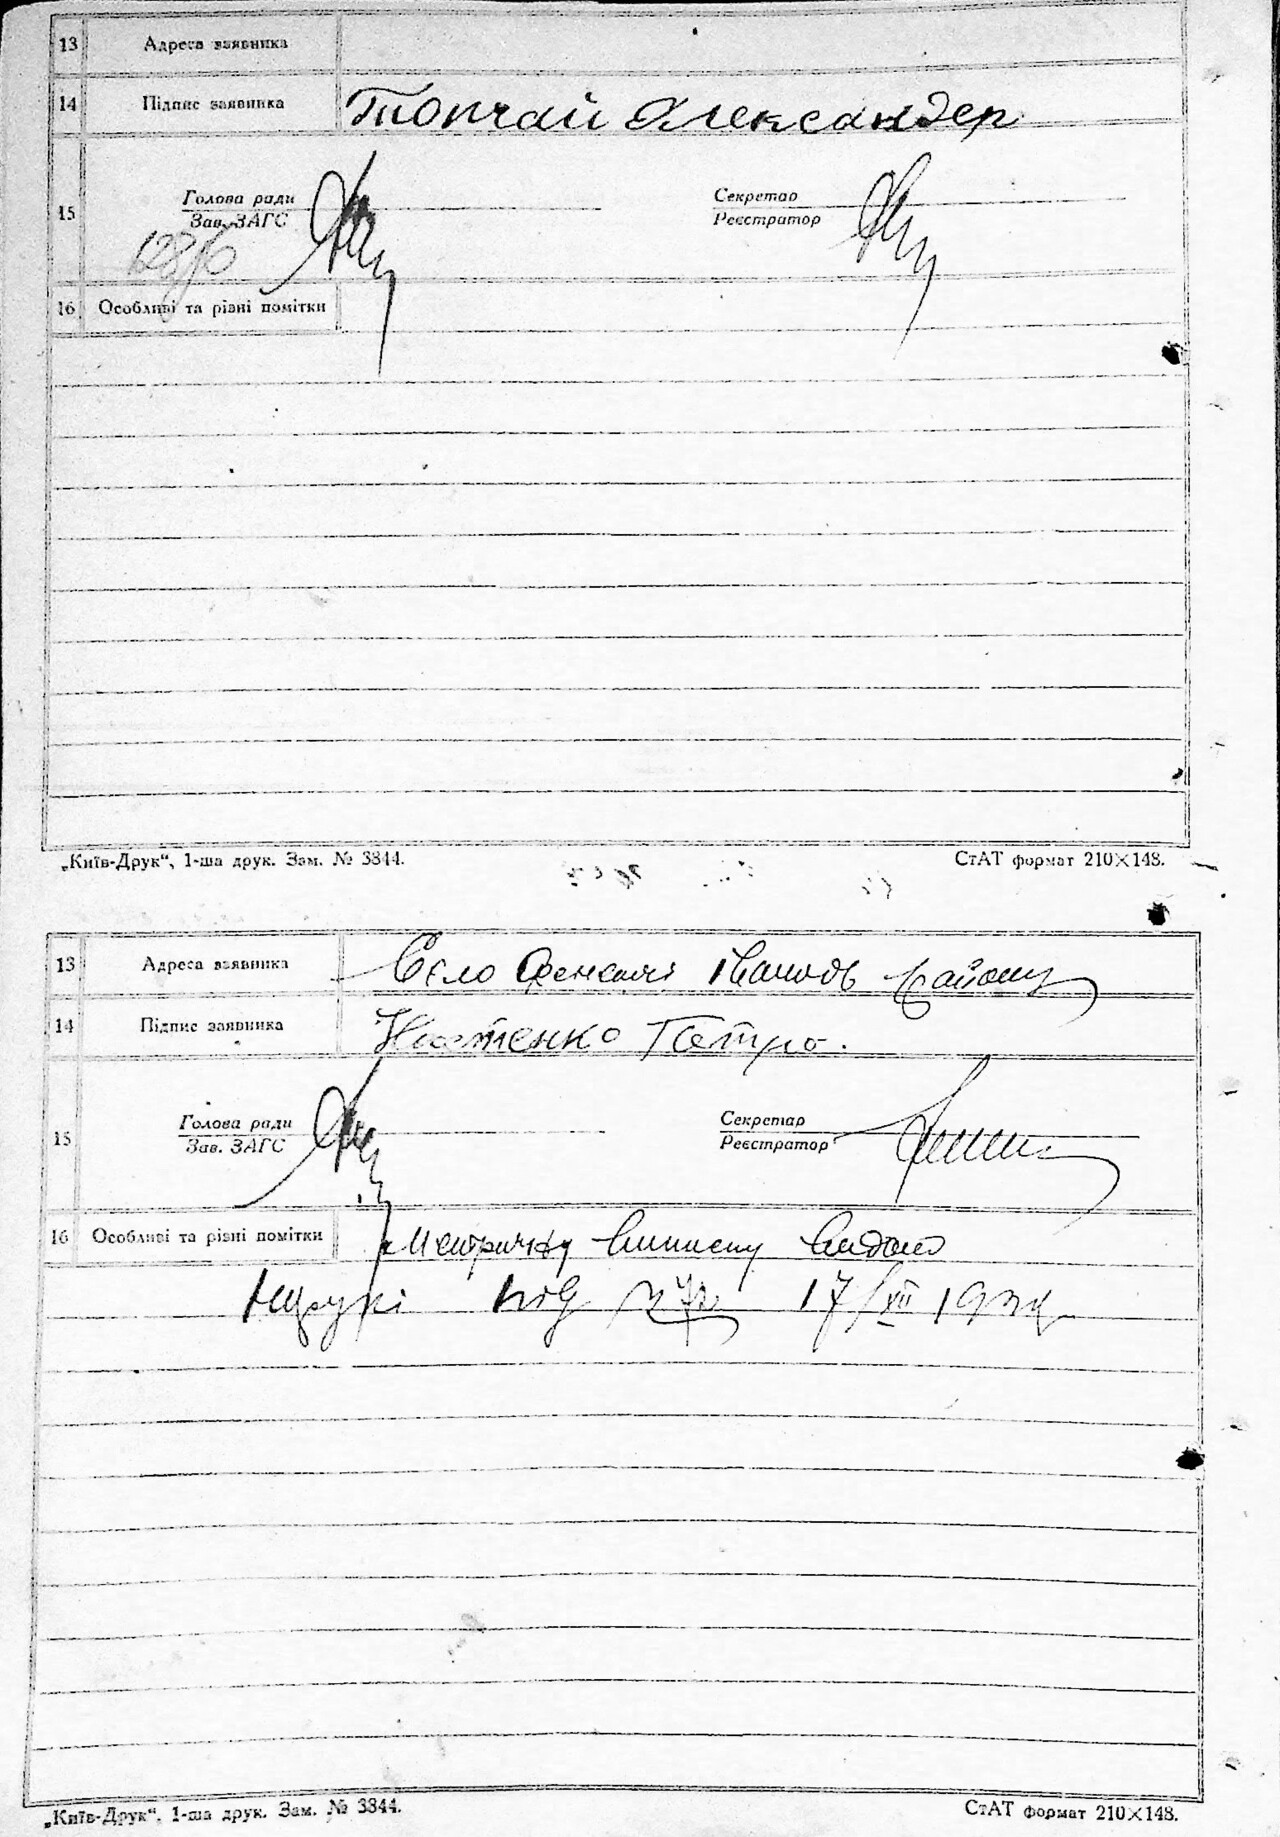 13 Адреса заявника
14 Підпис заявника Топчай Александер
15 Голова ради Секретар
Зав. ЗАГС Реєстратор
16 Особливі та різні помітки
„Київ-Друк“, 1-ша друк. Зам. № 3344. СтАТ формат 210×148.
13 Адреса заявника Село району
14 Підпис заявника Петро.
15 Голова ради Секретар
Зав. ЗАГС Реєстратор
16 Особливі та різні помітки Метричну виписку видано
під 17/VII
„Київ-Друк“, 1-ша друк. Зам. № 3344. СтАТ формат 210×148.